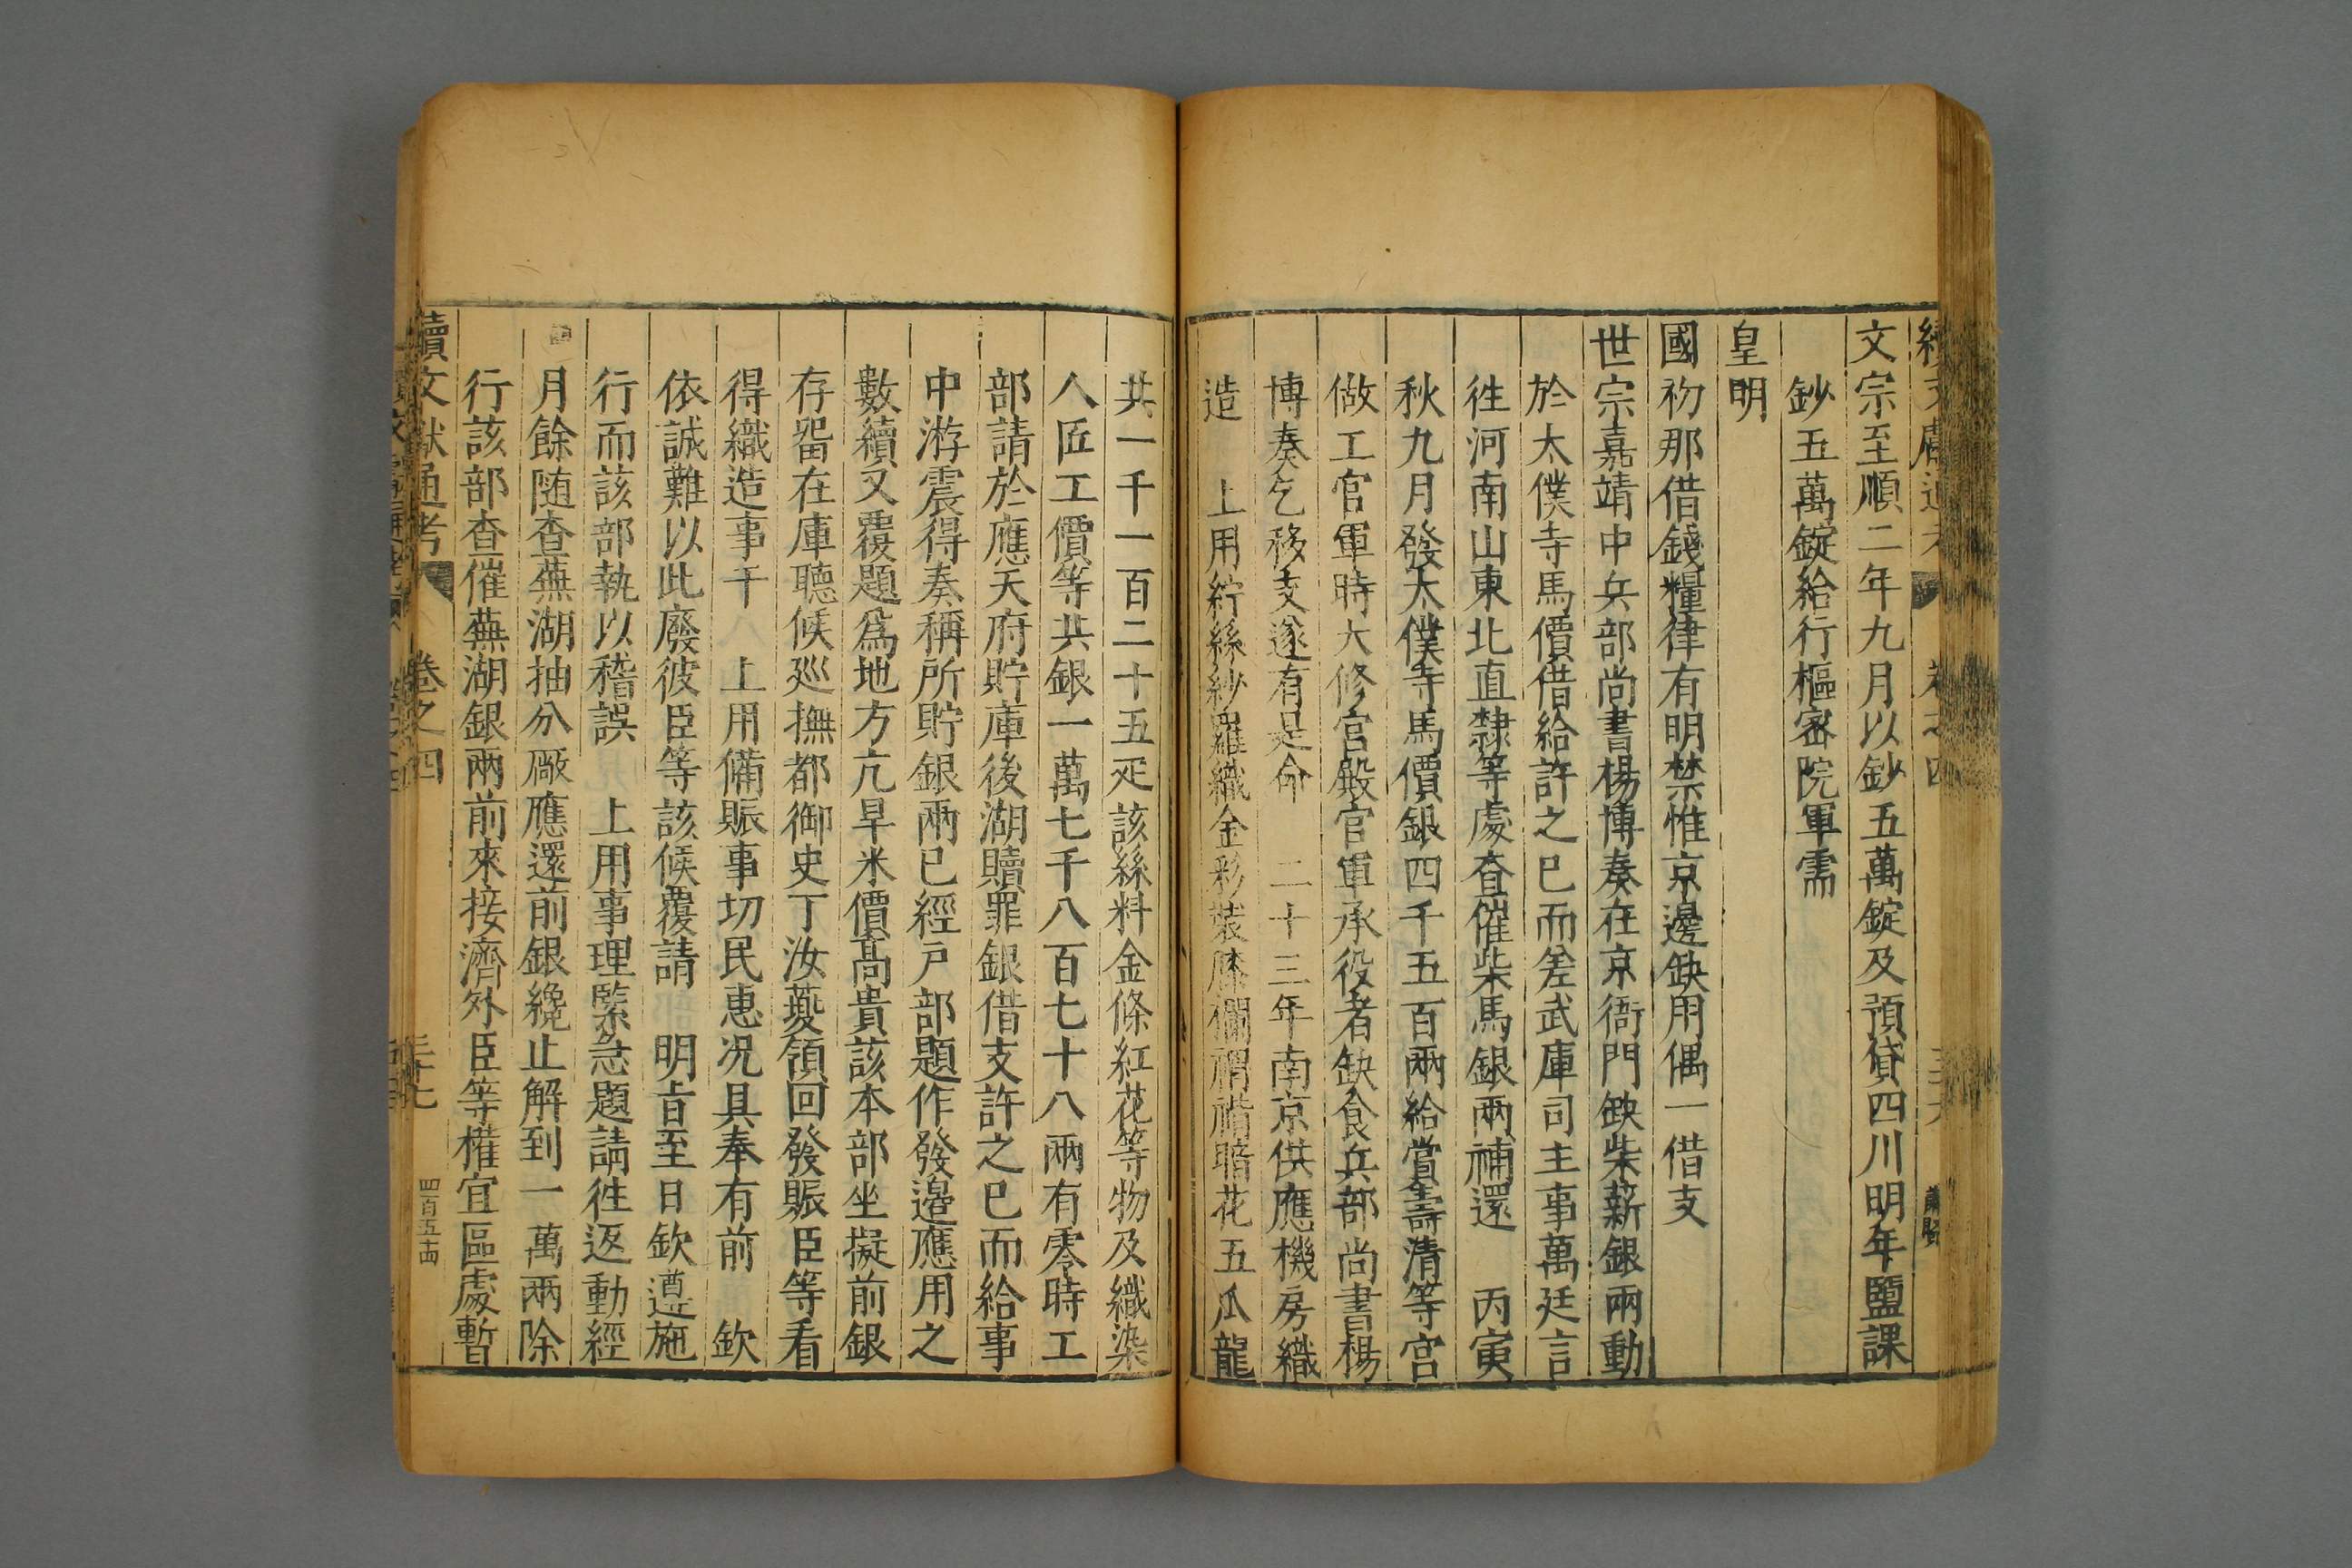 文宗至順二年九月以鈔五萬錠及預貸四川明年鹽課
鈔五萬錠給行樞密院軍需
皇明
國初那借錢糧律有明禁惟京邊缺用偶一借支
世宗嘉靖中兵部尚書楊博奏在京衙門缺柴薪銀兩動
於太僕寺馬價借給許之已而差武庫司主事萬廷言
徃河南山東北直隸等處查催柴馬銀兩補還 丙寅
秋九月發太僕寺馬價銀四千五百兩給賞壽清等宮
做工官軍時大修宮殿官軍承役者缺食兵部尚書楊
博奏乞移支遂有是命 二十三年南京供應機房織
造 上用紵絲紗羅織金彩裝膝襴 暗花五爪龍
共一千一百二十五疋該絲料金條紅花等物及織染
人匠工價等共銀一萬七千八百七十八兩有零時工
部請於應天府貯庫後湖贖罪銀借支許之已而給事
中游震得奏稱所貯銀兩已經戶部題作發邊應用之
數續又覆題爲地方亢旱米價高貴該本部坐擬前銀
存畱在庫聽候廵撫都御史丁汝夔領回發賑臣等看
得織造事干 上用備賑事切民惠况具奉有前 欽
依誠難以此廢彼臣等該候覆請 明旨至日欽遵施
行而該部執以稽誤 上用事理緊急題請徃返動經
月餘随查蕪湖抽分厰應還前銀纔止解到一萬兩除
行該部查催蕪湖銀兩前來接濟外臣等權宜區處暫
續文獻通考 卷之四 三十七 四百五十四